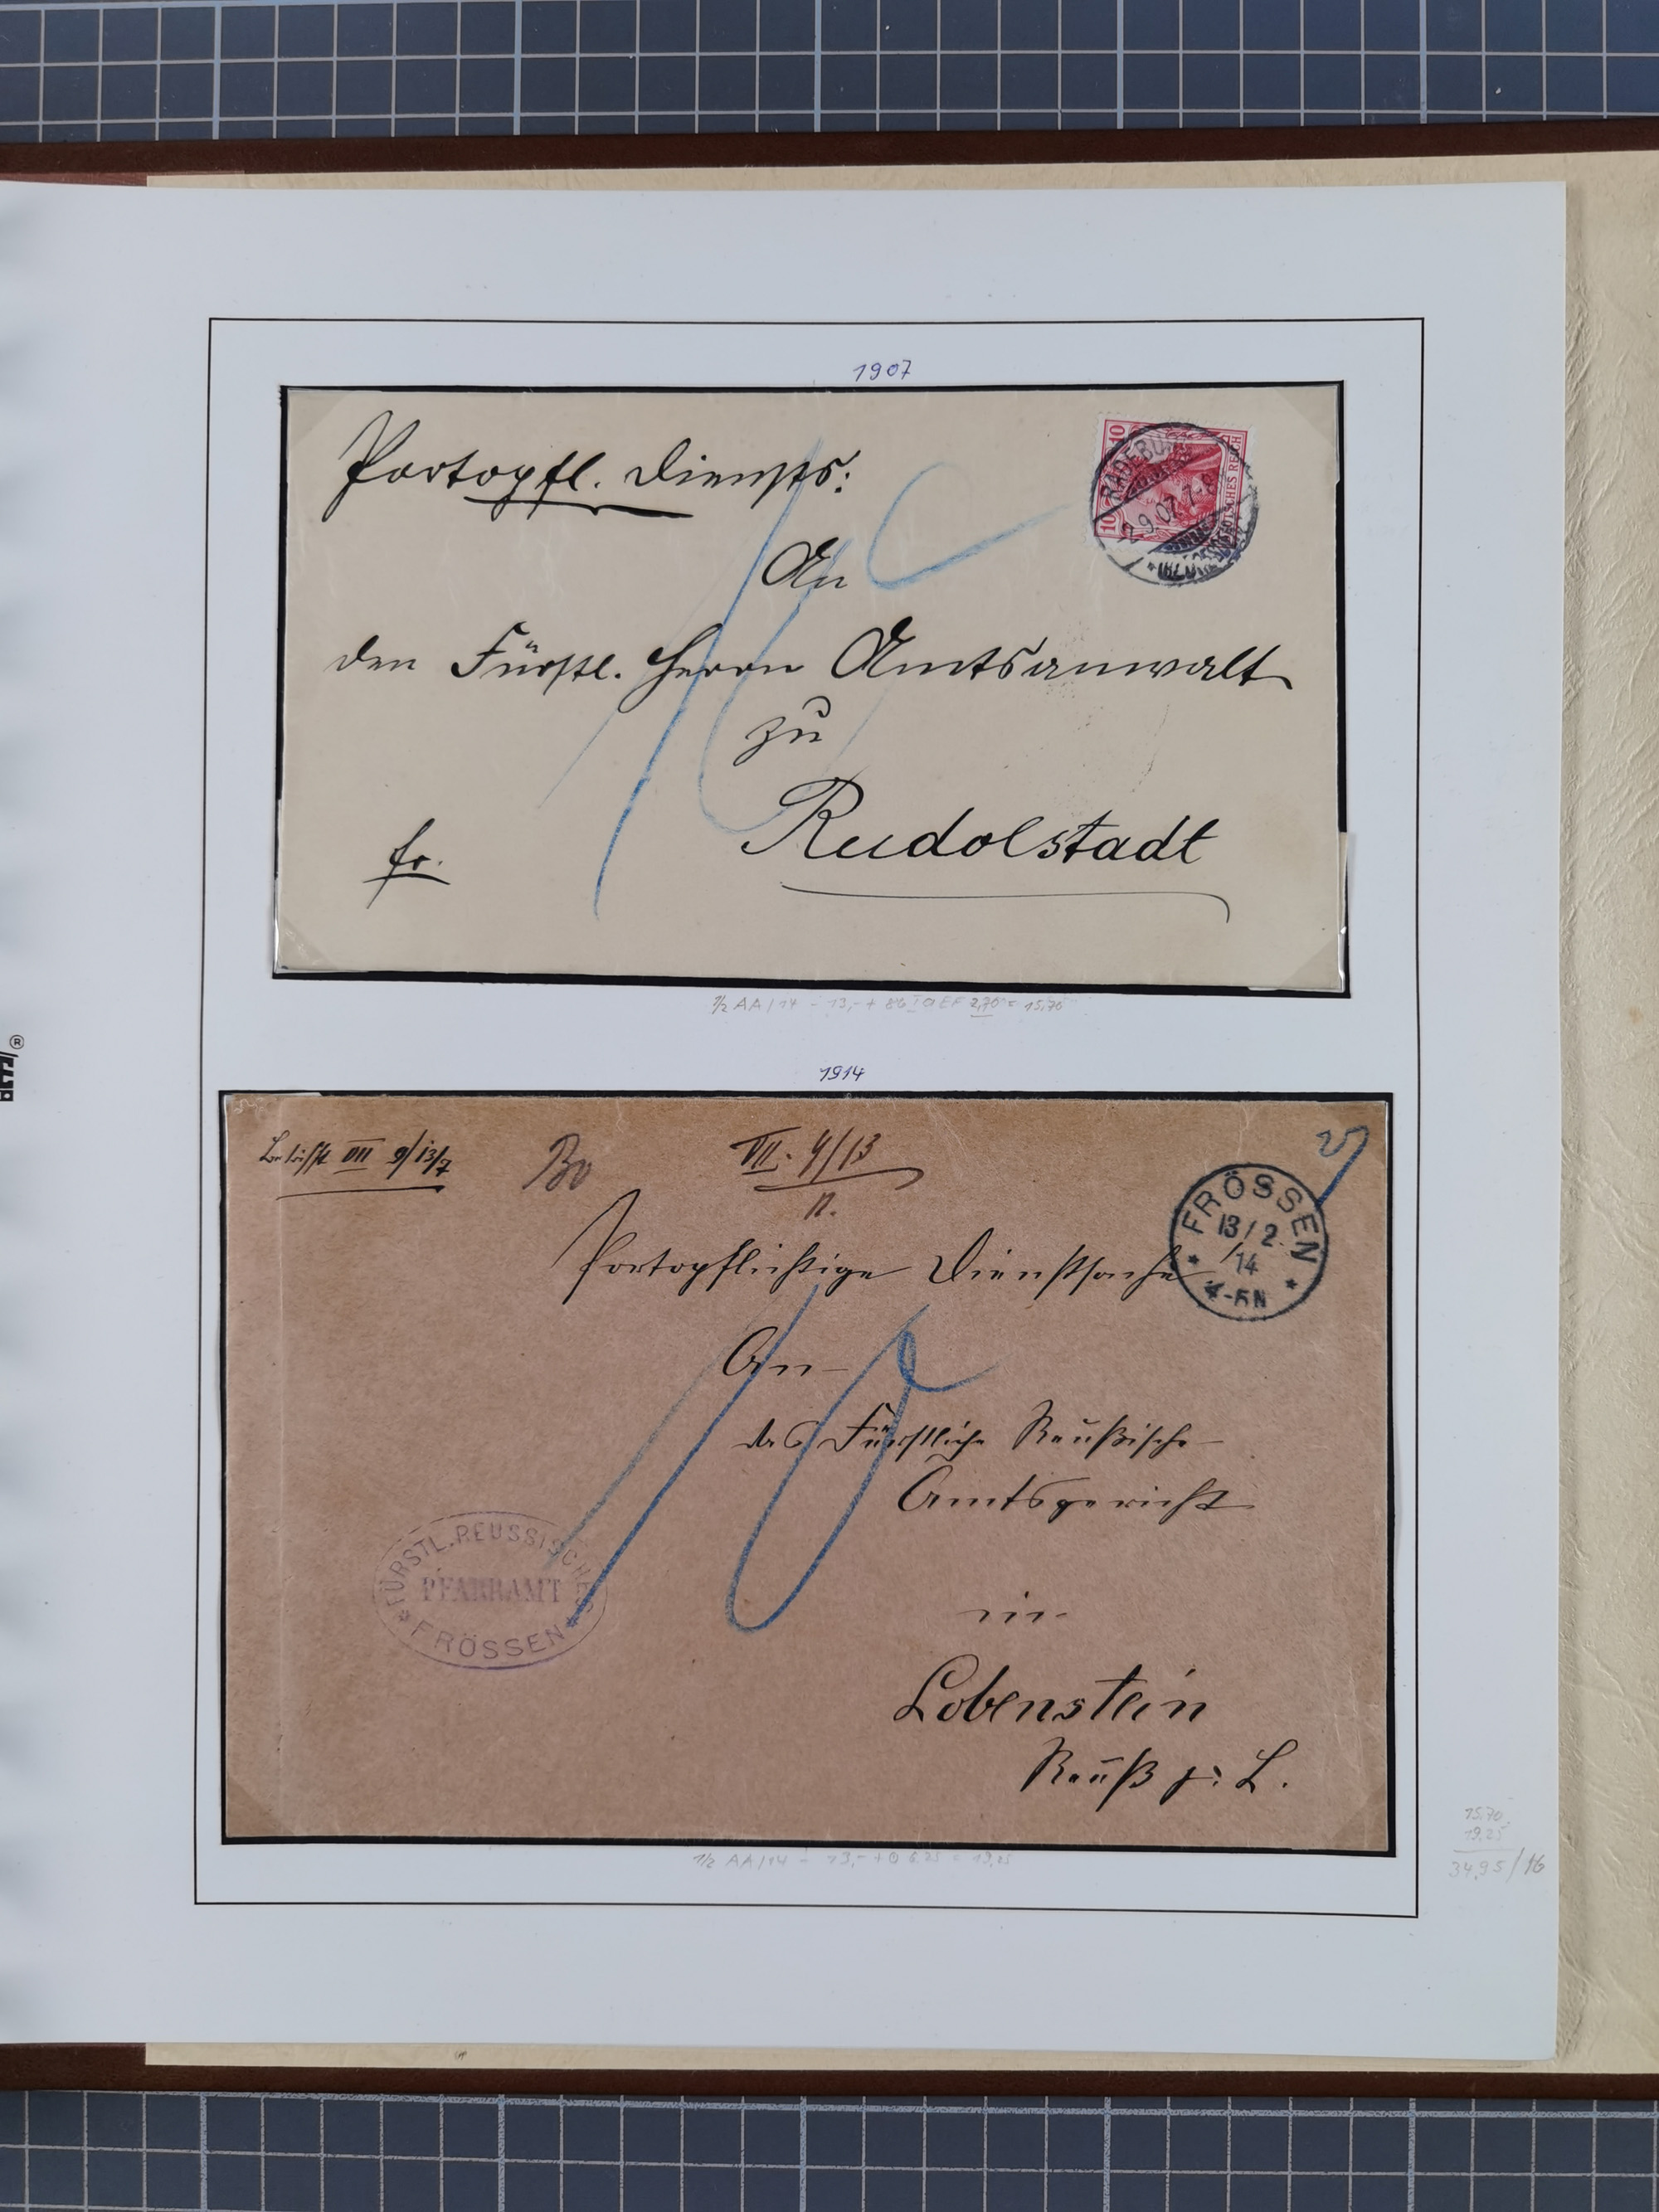 1907
Portopfl. Diensts:
10
10
DEUTSCHES REICH
RADEBURG
2.9.07. 7-8
An
den Fürstl. Herrn Amtsanwalt
zu
Rudolstadt
fr.
1/2 AA/14 - 13,- + 86 I a EF 2,70 = 15,70
1914
Betrifft VII 9/13/7
VII. 4/13
FRÖSSEN
13/2.
14
4-5N
Portopflichtige Dienstsache
10
An
das Fürstliche Reußische
Amtsgericht
in
Lobenstein
Reuß j. L.
FÜRSTL. REUSSISCHES
PFARRAMT
FRÖSSEN
1/2 AA/14 - 13,- + 6,25 = 19,25
15,70
19,25
34,95/16
®